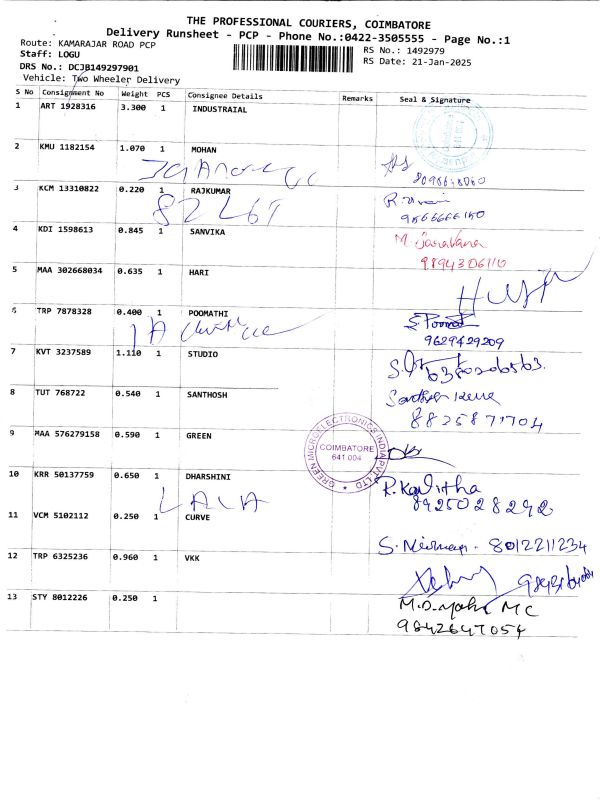 THE PROFESSIONAL COURIERS, COIMBATORE
Delivery Runsheet - PCP - Phone No.:0422-3505555 - Page No.:1
Route: KAMARAJAR ROAD PCP
RS No.: 1492979
Staff: LOGU
RS Date: 21-Jan-2025
DRS No.: DCJB149297901
Vehicle: Two Wheeler Delivery
S No Consignment No Weight PCS Consignee Details Remarks Seal & Signature
1 ART 1928316 3.300 1 INDUSTRAIAL
2 KMU 1182154 1.070 1 MOHAN
3 KCM 13310822 0.220 1 RAJKUMAR
8267
4 KDI 1598613 0.845 1 SANVIKA
M. Saravana
9894306110
5 MAA 302668034 0.635 1 HARI
6 TRP 7878328 0.400 1 POOMATHI
9629429209
7 KVT 3237589 1.110 1 STUDIO
8 TUT 768722 0.540 1 SANTHOSH
8825871704
9 MAA 576279158 0.590 1 GREEN
GREEN MICROELECTRONICS INDIA PVT LTD
COIMBATORE
641 004
10 KRR 50137759 0.650 1 DHARSHINI
R. Kavitha
8925028292
11 VCM 5102112 0.250 1 CURVE
S. - 8012211234
12 TRP 6325236 0.960 1 VKK
13 STY 8012226 0.250 1
9842647054